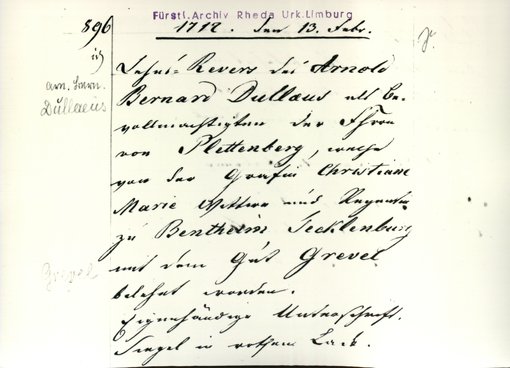 896
Fürstl. Archiv Rheda Urk. Limburg
1712. den 13. Febr.
Lehns-Revers des Arnold
Bernard Dullaeus als Be-
vollmächtigten der Frau
von Plettenberg, welche
von der Gräfin Christiane
Marie Wittwe und Regentin
zu Bentheim Tecklenburg
mit dem Gut Grevel
belehnt worden.
Eigenhändige Unterschrift.
Siegel in rothem Lack.
Dullaeus